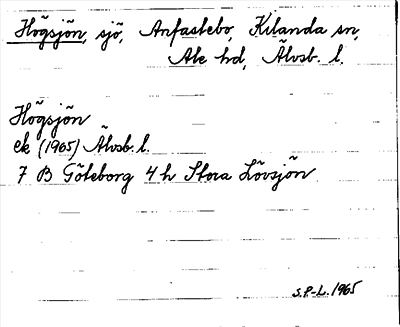 Högsjön, sjö, Anfastebo, Kilanda sn,
Ale hd, Älvsb. l.
Högsjön
ek (1965) Älvsb. l.
7 B Göteborg 4 h Stora Lövsjön
S.P-L. 1965